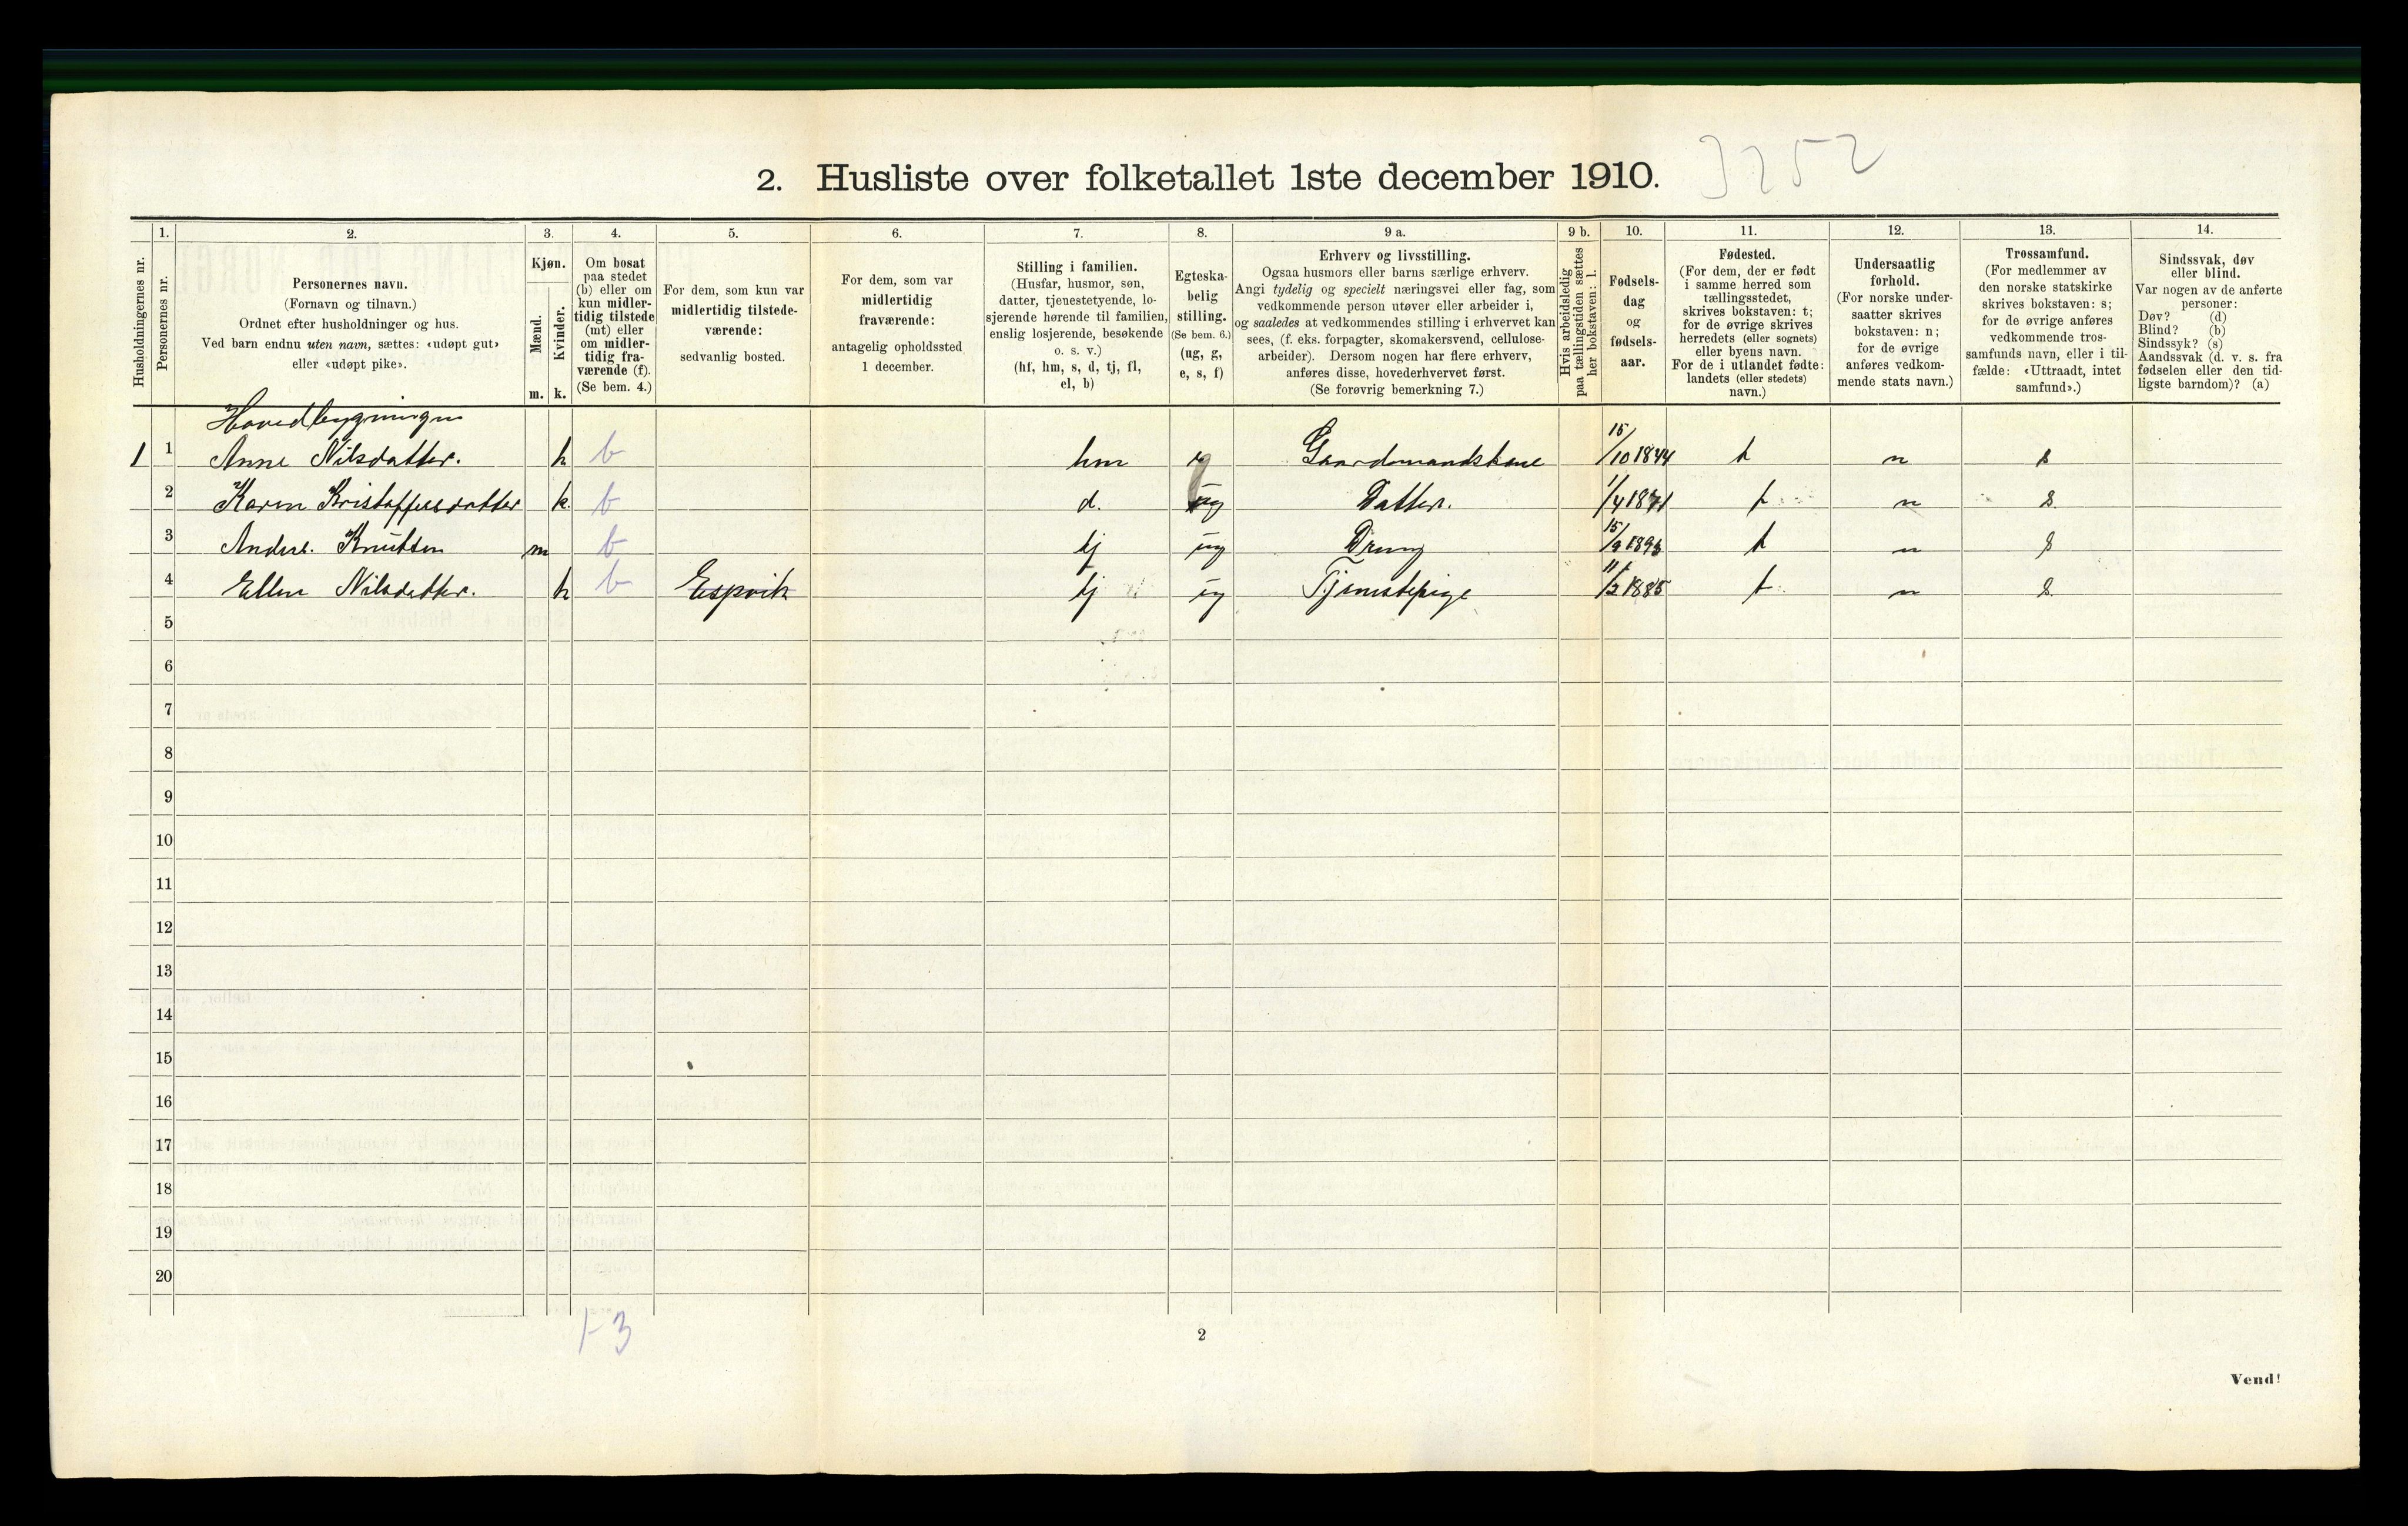 3252
2. Husliste over folketallet 1ste december 1910.
Husholdningernes nr.
1.
Personernes nr.
2.
Personernes navn.
(Fornavn og tilnavn.)
Ordnet efter husholdninger og hus.
Ved barn endnu uten navn, sættes: «udøpt gut»
eller «udøpt pike».
3.
Kjøn.
Mænd.
Kvinder.
m. k.
4.
Om bosat
paa stedet
(b) eller om
kun midler-
tidig tilstede
(mt) eller
om midler-
tidig fra-
værende (f).
(Se bem. 4.)
5.
For dem, som kun var
midlertidig tilstede-
værende:
sedvanlig bosted.
6.
For dem, som var
midlertidig
fraværende:
antagelig opholdssted
1 december.
7.
Stilling i familien.
(Husfar, husmor, søn,
datter, tjenestetyende, lo-
sjerende hørende til familien,
enslig losjerende, besøkende
o. s. v.)
(hf, hm, s, d, tj, fl,
el, b)
8.
Egteska-
belig
stilling.
(Se bem. 6.)
(ug, g,
e, s, f)
9 a.
Erhverv og livsstilling.
Ogsaa husmors eller barns særlige erhverv.
Angi tydelig og specielt næringsvei eller fag, som
vedkommende person utøver eller arbeider i,
og saaledes at vedkommendes stilling i erhvervet kan
sees, (f. eks. forpagter, skomakersvend, cellulose-
arbeider). Dersom nogen har flere erhverv,
anføres disse, hovederhvervet først.
(Se forøvrig bemerkning 7.)
9 b.
Hvis arbeidsledig
paa tællingstiden sættes
her bokstaven: l.
10.
Fødsels-
dag
og
fødsels-
aar.
11.
Fødested.
(For dem, der er født
i samme herred som
tællingsstedet,
skrives bokstaven: t;
for de øvrige skrives
herredets (eller sognets)
eller byens navn.
For de i utlandet fødte:
landets (eller stedets)
navn.)
12.
Undersaatlig
forhold.
(For norske under-
saatter skrives
bokstaven: n;
for de øvrige
anføres vedkom-
mende stats navn.)
13.
Trossamfund.
(For medlemmer av
den norske statskirke
skrives bokstaven: s;
for de øvrige anføres
vedkommende tros-
samfunds navn, eller i til-
fælde: «Uttraadt, intet
samfund».)
14.
Sindssvak, døv
eller blind.
Var nogen av de anførte
personer:
Døv? (d)
Blind? (b)
Sindssyk? (s)
Aandssvak (d. v. s. fra
fødselen eller den tid-
ligste barndom)? (a)
Hovedbygningen
1 1 Anne Nilsdatter. k b hm Gaardmandskone 15/10 1844 t n s
2 Karen Kristoffersdatter k. b d. ug Datter. 1/4 1871 t n s.
3 Anders. Knutsen m b tj ug Dreng 15/9 1893 t n s
4 Ellen Nilsdatter. k b Espvik tj ug Tjenestepige 11/2 1885 t n s.
5
6
7
8
9
10
11
12
13
14
15
16
17
18
19
20
1-3
2
Vend!